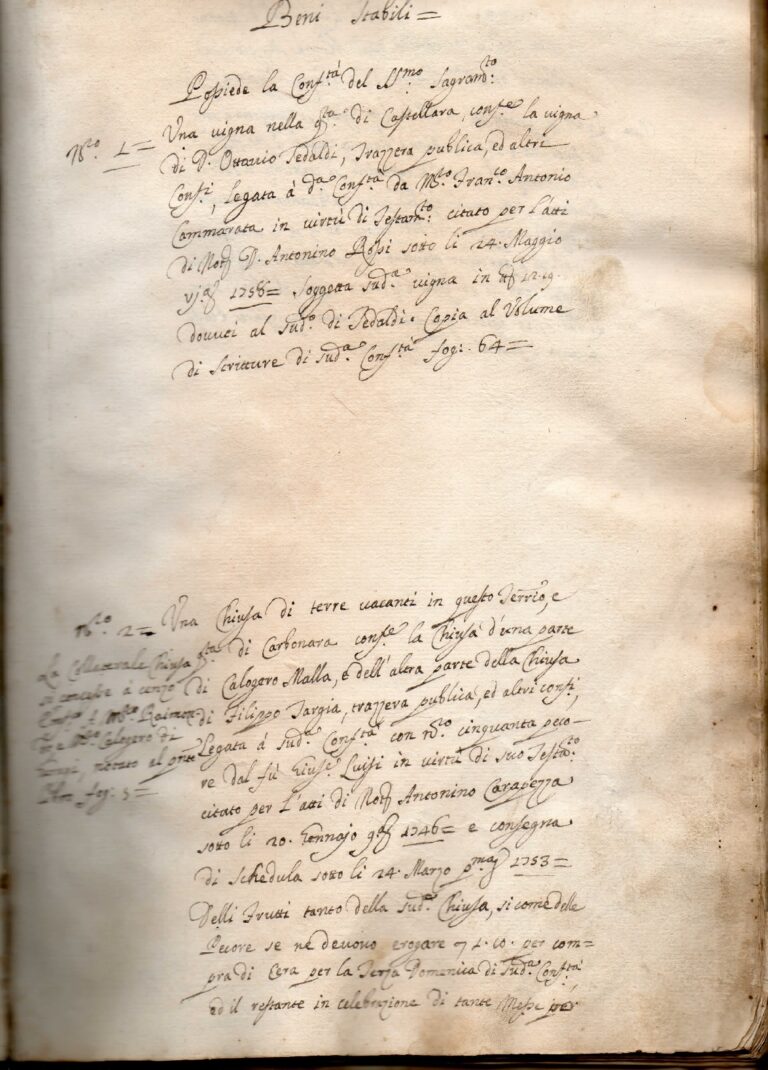 Beni Stabili =
Possiede la Conf.tà del SS.mo Sagram.to
N.ro 1 = Una vigna nella q.ta di Castellara, conf.e la vigna
di D. Ottavio Tedaldi, Trazzera publica, ed altri
Conf.i, legata á d.a Conf.tà da M.ro Fran.co Antonio
Cammarata in virtù di Testam.to citato per l'atti
di Not.r D. Antonino Rossi sotto li 24. Maggio
1758 = Soggetta sud.a vigna in 12.19.
dovuti al sud.o di Tedaldi. Copia al Volume
di Scritture di sud.a Conf.tà fog: 64 =
N.ro 2 = Una Chiusa di terre vacanti in questo Terr.io, e
q.ta di Carbonara conf.e la Chiusa d'una parte
di Calogero Malla, e dell'altra parte della Chiusa
di Filippo Targia, trazzera publica, ed altri confi,
Legata á sud.a Conf.tà con n.ro cinquanta peco-
re dal fù Gius.e Luisi in virtù di suo Testa.to
citato per l'atti di Not.r Antonino Carapezza
sotto li 20. Gennajo 9.a 1746 = e consegna
di Schedula sotto li 24. Marzo p.ma 1753 =
Delli Frutti tanto della sud.a Chiusa, si come delle
Pecore se ne devono erogare 1.10. per com=
pra di Cera per la Terza Domenica di sud.a Conf.tà
ed il restante in celebrazione di tante Messe per
La Collaterale Chiusa
si concesse á censo
M.ro Raimon-
do e M.ro Calogero di
notato al pnte
libro fog: 5 =